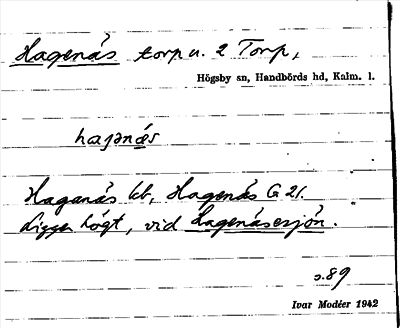 Hagenås torp u. 2 Torp,
Högsby sn, Handbörds hd, Kalm. l.
hagənås
Haganås kb, Hagenås G 21.
Ligger högt, vid Hagenåsesjön.
s. 89
Ivar Modéer 1942